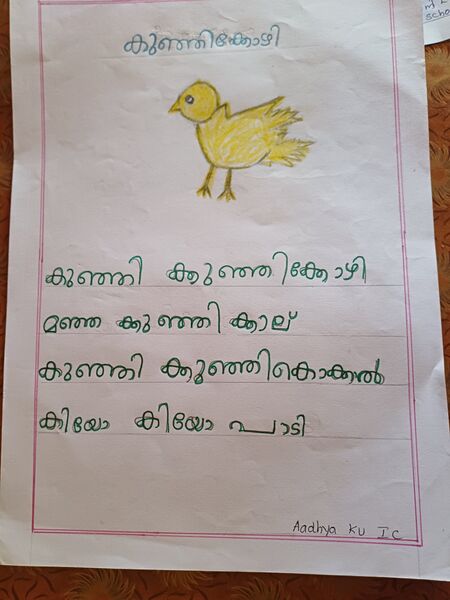 കുഞ്ഞിക്കോഴി
കുഞ്ഞി ക്കുഞ്ഞിക്കോഴി
മഞ്ഞ ക്കുഞ്ഞി ക്കാല്
കുഞ്ഞി ക്കുഞ്ഞികൊക്കൽ
കിയോ കിയോ പാടി
Aadhya KU I C